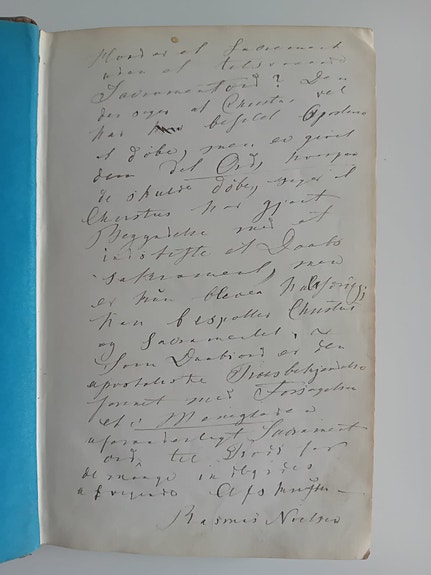 Hvad er et Sacrament
uden et tilsvarende
Sacramentord? Den
der siger at Christus vel
har befalet Apostlene
at döbe, men ei givet
dem det Ord, hvorpaa
de skulde döbe, siger at
Christus har gjort
Begyndelse med at
indstifte et Daabs
sakrament, men
er kun bleven halvfærdig;
han bespotter Christus
og Sacramentet. ~
Som Daabsord er den
apostoliske Troesbekjendelse
forenet med Forsagelsen
et i Menigheden
uforanderligt Sacrament
ord, til Trods for
de mange indbyrdes
afvigende
Rasmus Nielsen